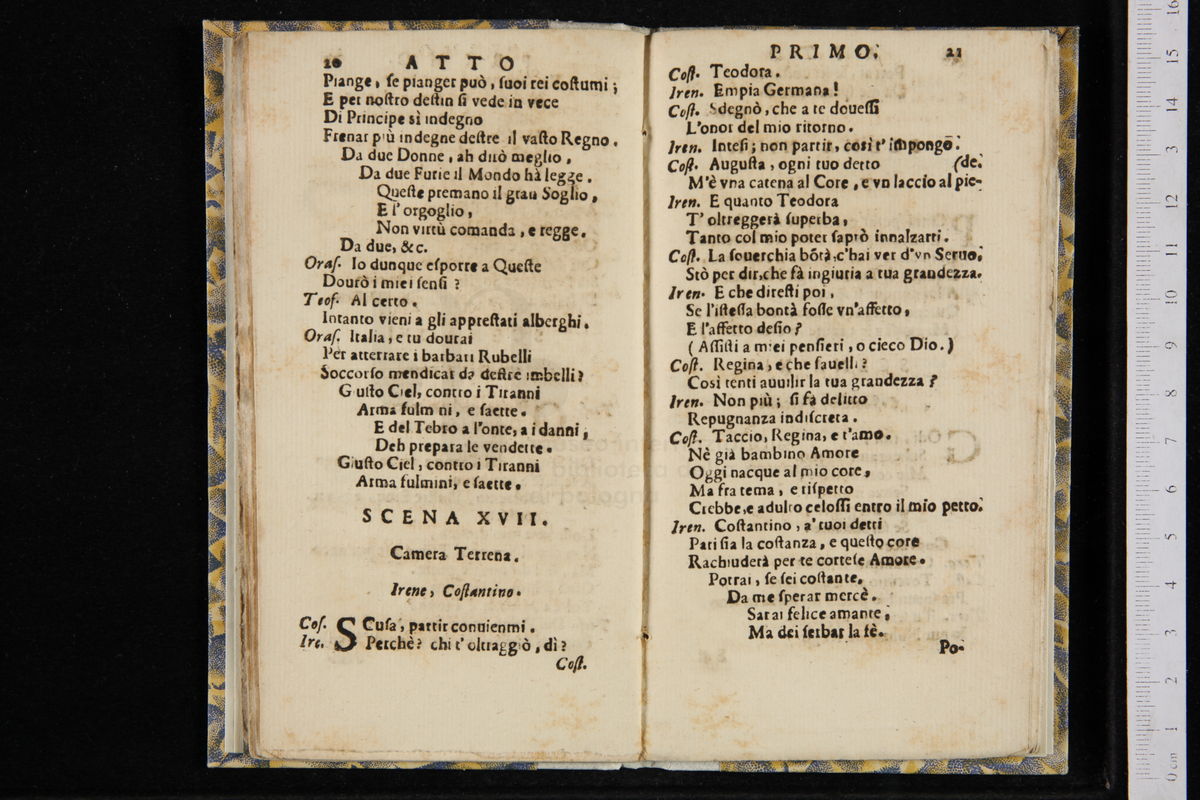 20 ATTO
Piange, se pianger può, suoi rei costumi;
E per nostro destin si vede in vece
Di Principe sì indegno
Frenar più indegne destre il vasto Regno.
Da due Donne, ah dirò meglio,
Da due Furie il Mondo hà legge.
Queste premano il gran Soglio,
E l'orgoglio,
Non virtù comanda, e regge.
Da due, &c.
Oras. Io dunque esporre a Queste
Dourò i miei sensi?
Teof. Al certo.
Intanto vieni a gli apprestati alberghi.
Oras. Italia, e tu dourai
Per atterrare i barbari Rubelli
Soccorso mendicar da destre imbelli?
Giusto Ciel, contro i Tiranni
Arma fulmini, e saette.
E del Tebro a l'onte, a i danni,
Deh prepara le vendette.
Giusto Ciel, contro i Tiranni
Arma fulmini, e saette.
SCENA XVII.
Camera Terrena.
Irene, Costantino.
Cos. SCusa, partir conuienmi.
Ire. Perchè? chi t'oltraggiò, dì?
Cost.
PRIMO. 21
Cost. Teodora.
Iren. Empia Germana!
Cost. Sdegnò, che a te douessi
L'onor del mio ritorno.
Iren. Intesi; non partir, così t'impongo.
Cost. Augusta, ogni tuo detto (de.
M'è vna catena al Core, e vn laccio al pie-
Iren. E quanto Teodora
T'oltreggerà superba,
Tanto col mio poter saprò innalzarti.
Cost. La souerchia bõtà, c'hai ver d'vn Seruo,
Stò per dir, che fà ingiuria a tua grandezza.
Iren. E che diresti poi,
Se l'istessa bontà fosse vn'affetto,
E l'affetto desio?
(Assisti a miei pensieri, o cieco Dio.)
Cost. Regina, e che fauelli?
Così tenti auuilir la tua grandezza?
Iren. Non più; si fà delitto
Repugnanza indiscreta.
Cost. Taccio, Regina, e t'amo.
Nè già bambino Amore
Oggi nacque al mio core,
Ma fra tema, e rispetto
Crebbe, e adulto celossi entro il mio petto.
Iren. Costantino, a' tuoi detti
Pari sia la costanza, e questo core
Rachiuderà per te cortese Amore.
Potrai, se sei costante,
Da me sperar mercè.
Sarai felice amante,
Ma dei serbar la fè.
Po-